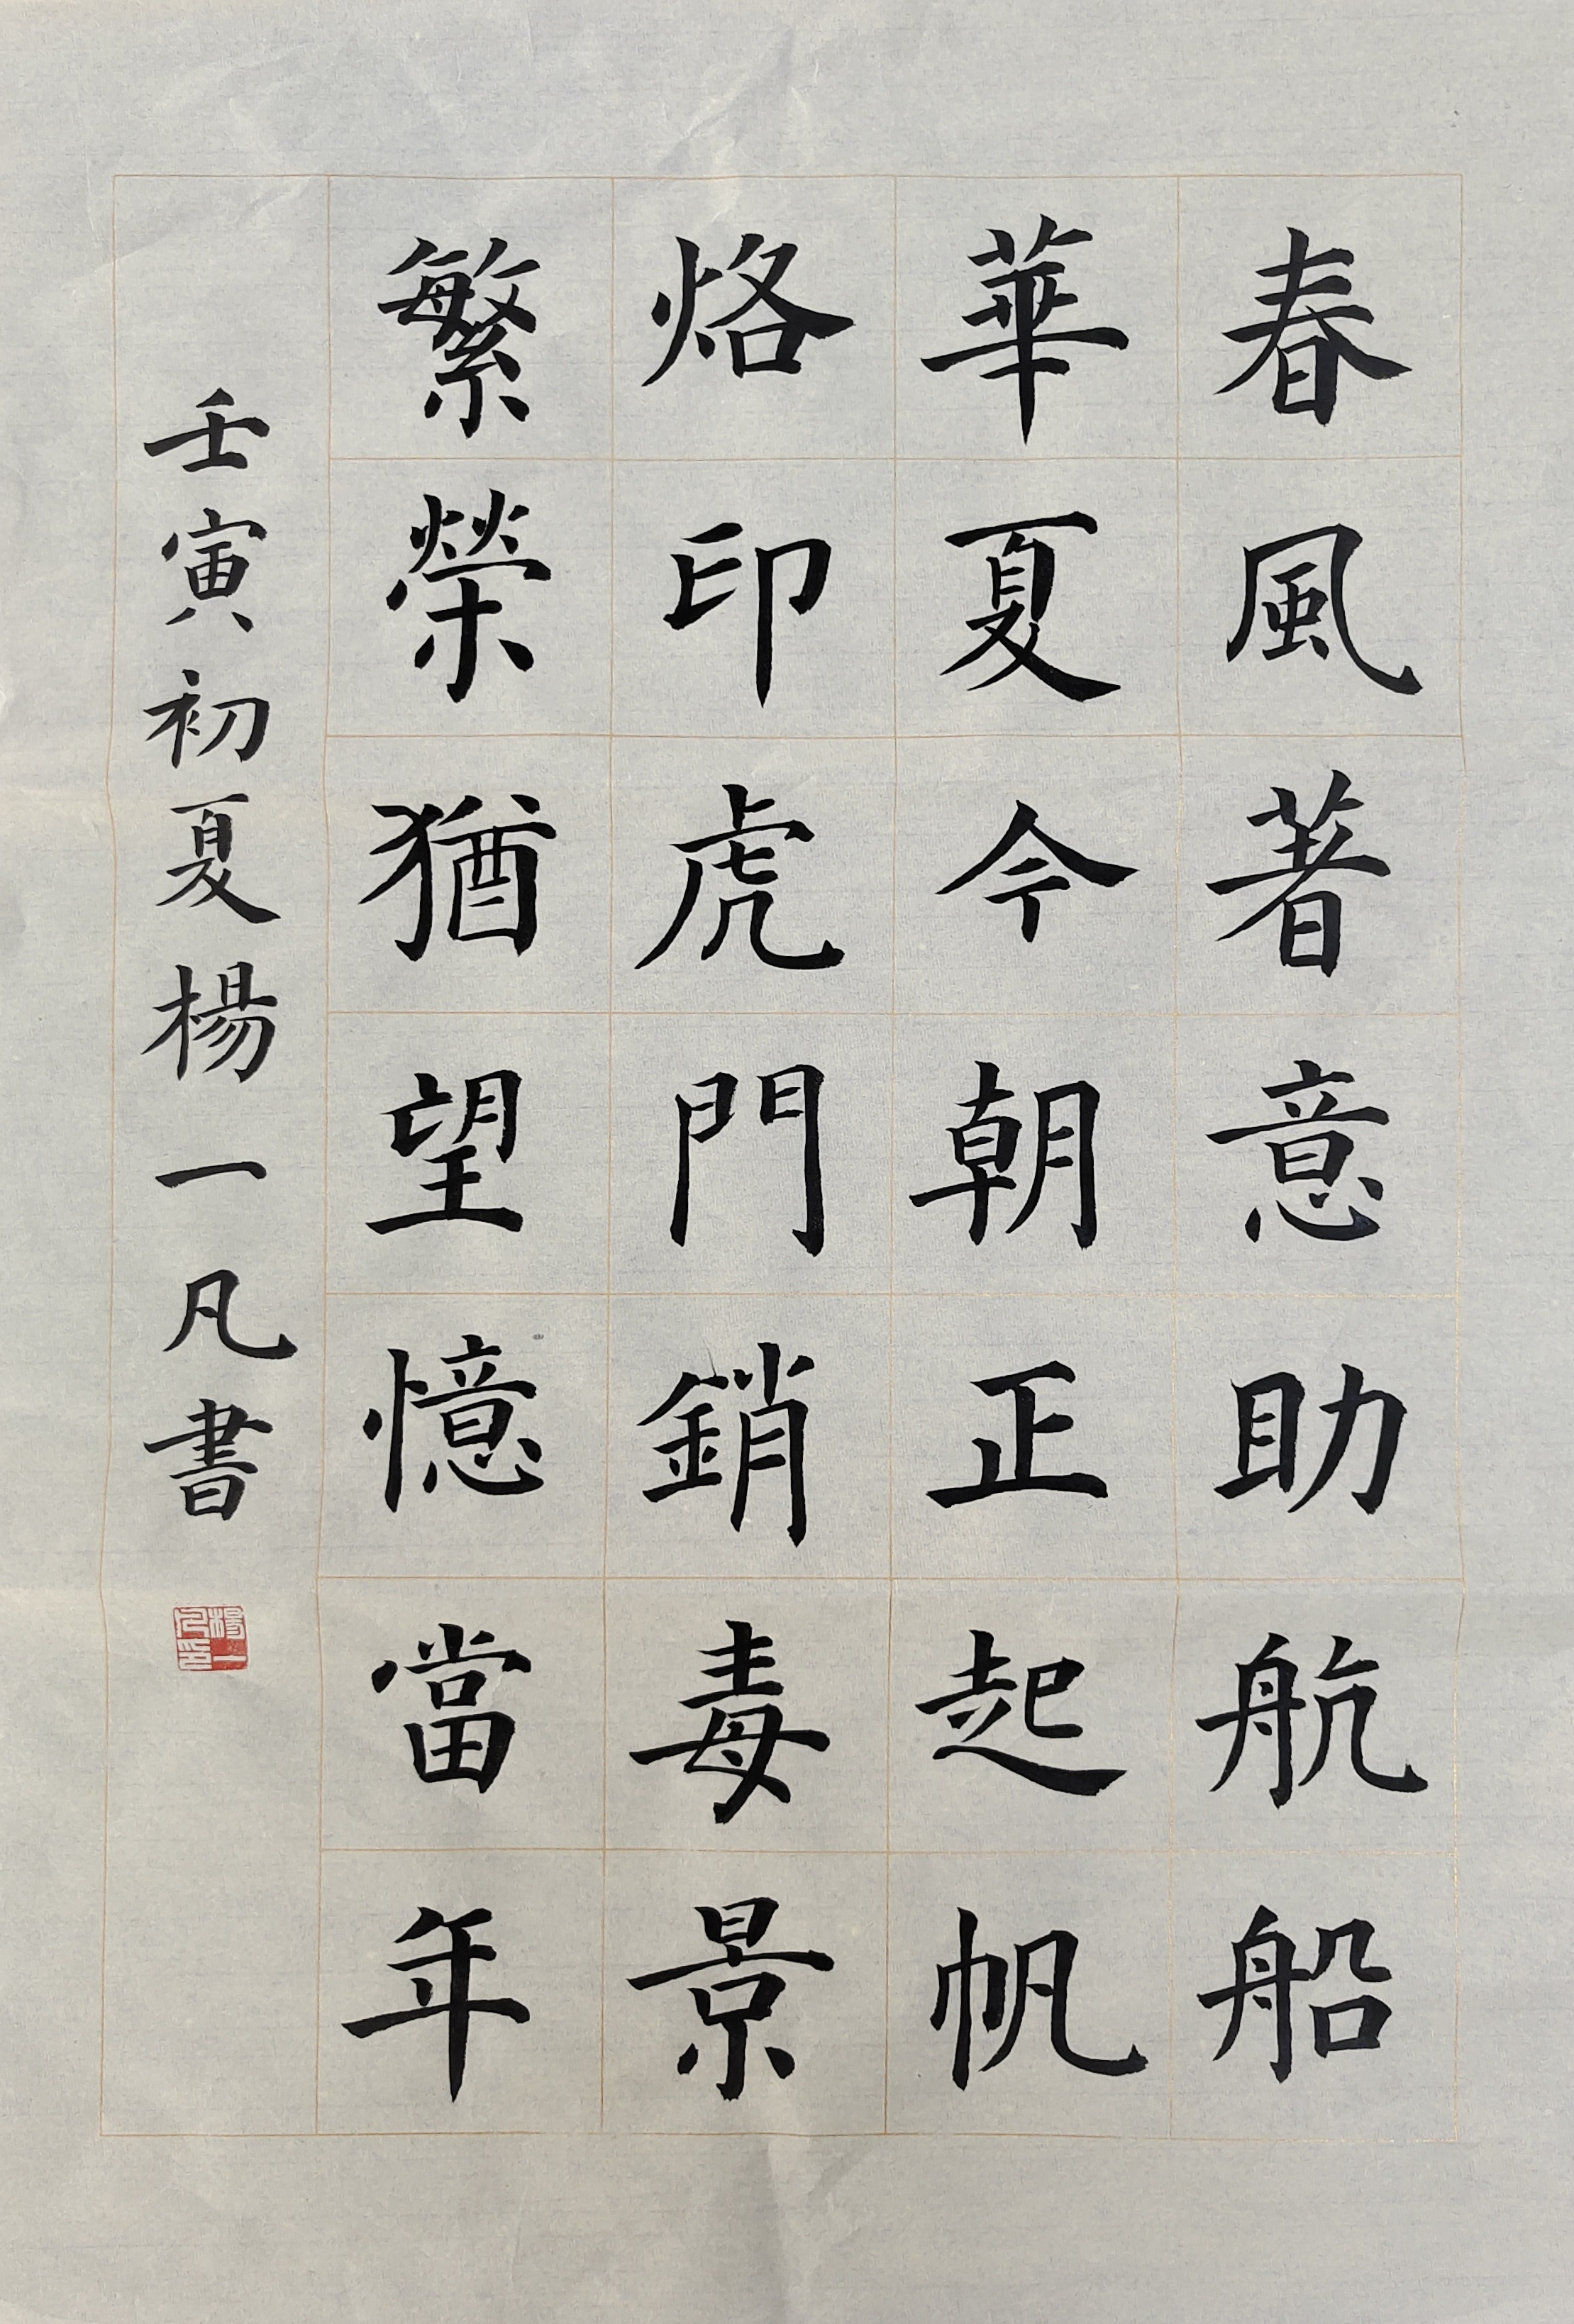 春風著意助航船
華夏今朝正起帆
烙印虎門銷毒景
繁榮猶望憶當年
壬寅初夏楊一凡書
楊一凡印